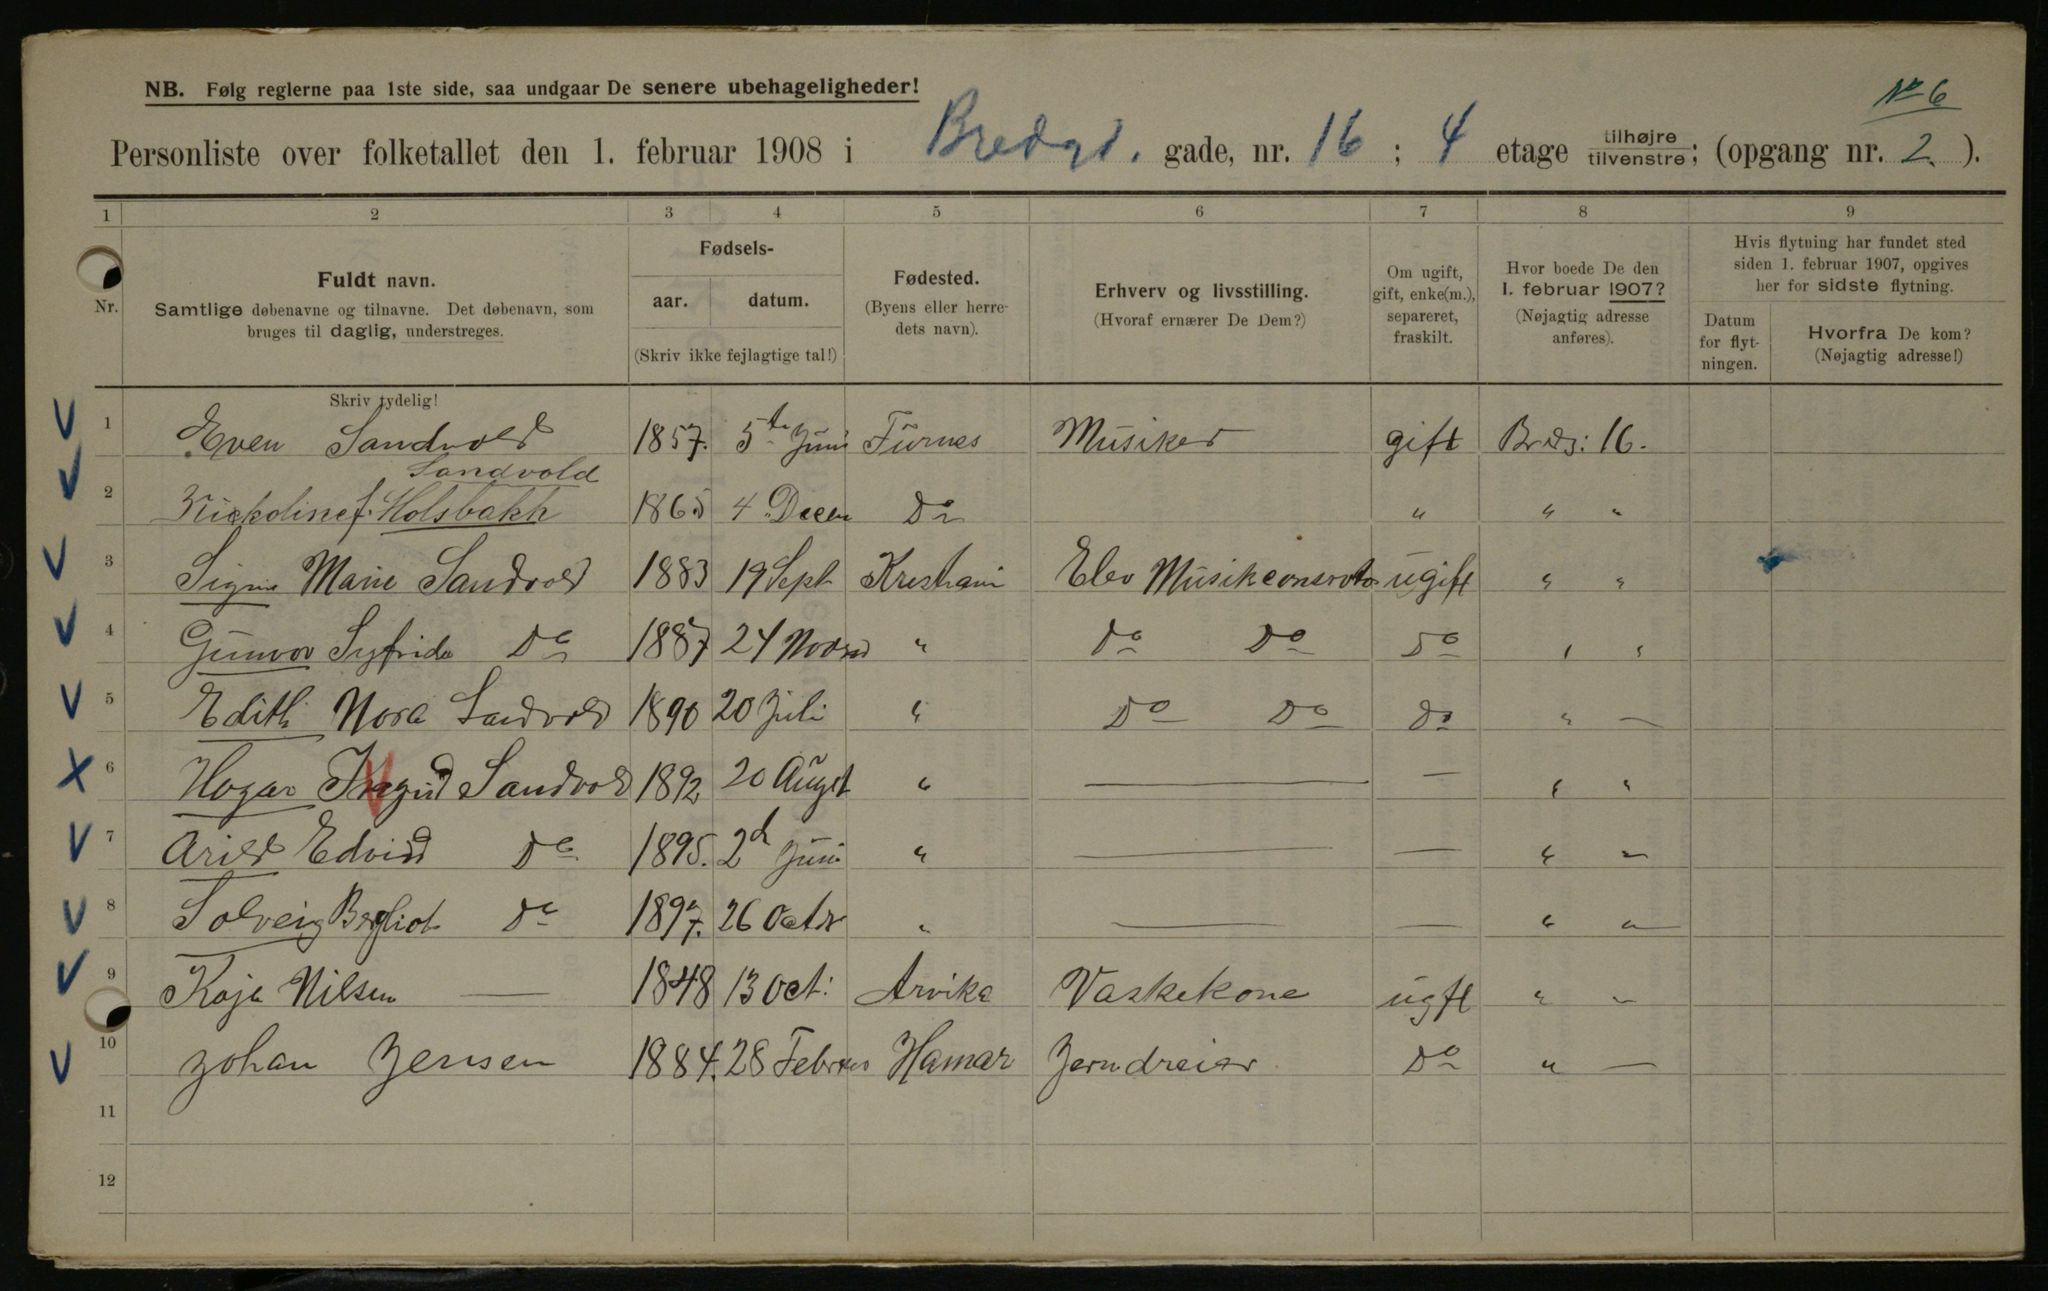 NB. Følg reglerne paa 1ste side, saa undgaar De senere ubehageligheder!
No 6
Personliste over folketallet den 1. februar 1908 i Bredgd. gade, nr. 16 ; 4 etage tilhøjre tilvenstre; (opgang nr. 2. ).
1 2 3 4 5 6 7 8 9
Nr.
Fuldt navn.
Samtlige døbenavne og tilnavne. Det døbenavn, som
bruges til daglig, understreges.
Skriv tydelig!
Fødsels-
aar. datum.
(Skriv ikke fejlagtige tal!)
Fødested.
(Byens eller herre-
dets navn).
Erhverv og livsstilling.
(Hvoraf ernærer De Dem?)
Om ugift,
gift, enke(m.),
separeret,
fraskilt.
Hvor boede De den
1. februar 1907?
(Nøjagtig adresse
anføres).
Hvis flytning har fundet sted
siden 1. februar 1907, opgives
her for sidste flytning.
Datum
for flyt-
ningen.
Hvorfra De kom?
(Nøjagtig adresse!)
1 Even Sandvold 1857. 5te Juni Furnes Musiker gift Bredg: 16.
Sandvold
2 f. Holsbakh 1865 4 Decem Do " " "
3 Signe Marie Sandvold 1883 19 Sept Kristiani Elev ugift " "
4 Gunvor Sigfrida Do 1887 24 " Do Do Do " "
5 Edith Nora Sandvold 1890 20 Juli " Do Do Do " —
6 Sandvold 1892 20 Augst " — — " "
7 Arild Edvin Do 1895. 2d Juni " — — " "
8 Solveig Bergliot Do 1897. 26 Octbr " — — " "
9 Kaja Nilsen — 1848 13 Oct: Arvika Vaskekone ugft " "
10 Johan Jensen 1884. 28 Februar Hamar Jerndreier Do " —
11
12